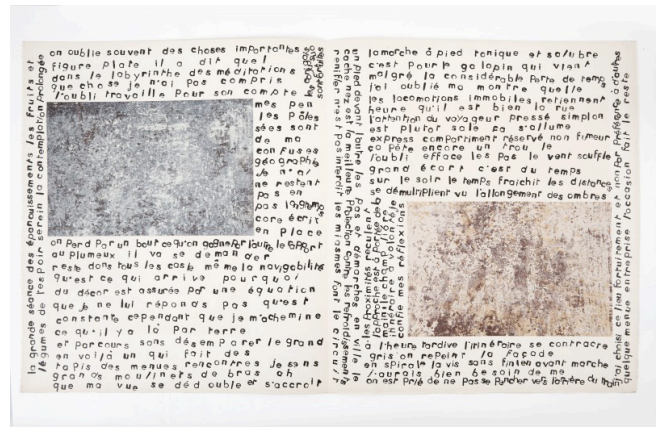 on oublie souvent des choses importantes
figure plate il a dit que l
dans le labyrinthe des méditations
que chose je n'ai pas compris
l'oubli travaille pour son compte
mes pen
les pôles
sées sont
de ma
confuses
géographie
je n'ai
ne restent
pas en
pas 19 grammes
core écrit
en place
on perd par un bout ce qu'on gagne par l'autre
au plumeux il va se demander
reste dans tous les cas même la navigabilité
qu'est ce qui arrive pourquoi
du décor est assurée par une équation
que je ne lui réponds pas qu'est
constante cependant que je m'achemine
ce qu'il y a là par terre
et parcours sans désemparer le grand
en voilà un qui fait des
tapis des menues rencontres je sens
grands moulinets de bras ah
que ma vue se dédouble et s'accroit
la grande séance des épanouissements les fruits et
légumes de l'espoir serein la contemplation prolongée
un pied devant l'autre les pas et démarches en ville le
cache nez est la meilleure protection contre les refroidissements
renifler n'est pas interdit les miasmes font le circuit
lamarche à pied tonique et salubre
c'est pour le galopin qui vient
malgré la considérable perte de temps
j'ai oublié ma montre quelle
les locomotions immobiles retiennent
heure qu'il est bien la rue
l'attention du voyageur pressé simplon
est plutôt sale ça s'allume
express compartiment réservé non fumeur
ça pète encore un trou le
l'oubli efface les pas le vent souffle
grand écart c'est du temps
sur le soir le temps fraichit les distances
se démultiplient vu l'allongement des ombres
à les proximités reculent
l'approche est à portée de
confie mes réflexions
à l'heure tardive l'itinéraire se contracte
gris on repeint la façade
en spirale la vis sans fin en avant marche
j'aurais bien besoin de me
on est prié de ne pas se pencher vers l'arrière du train
j'ai choisi ce lieu fortuitement et non par préférence à d'autres
quelque menue entreprise l'occasion fait le reste